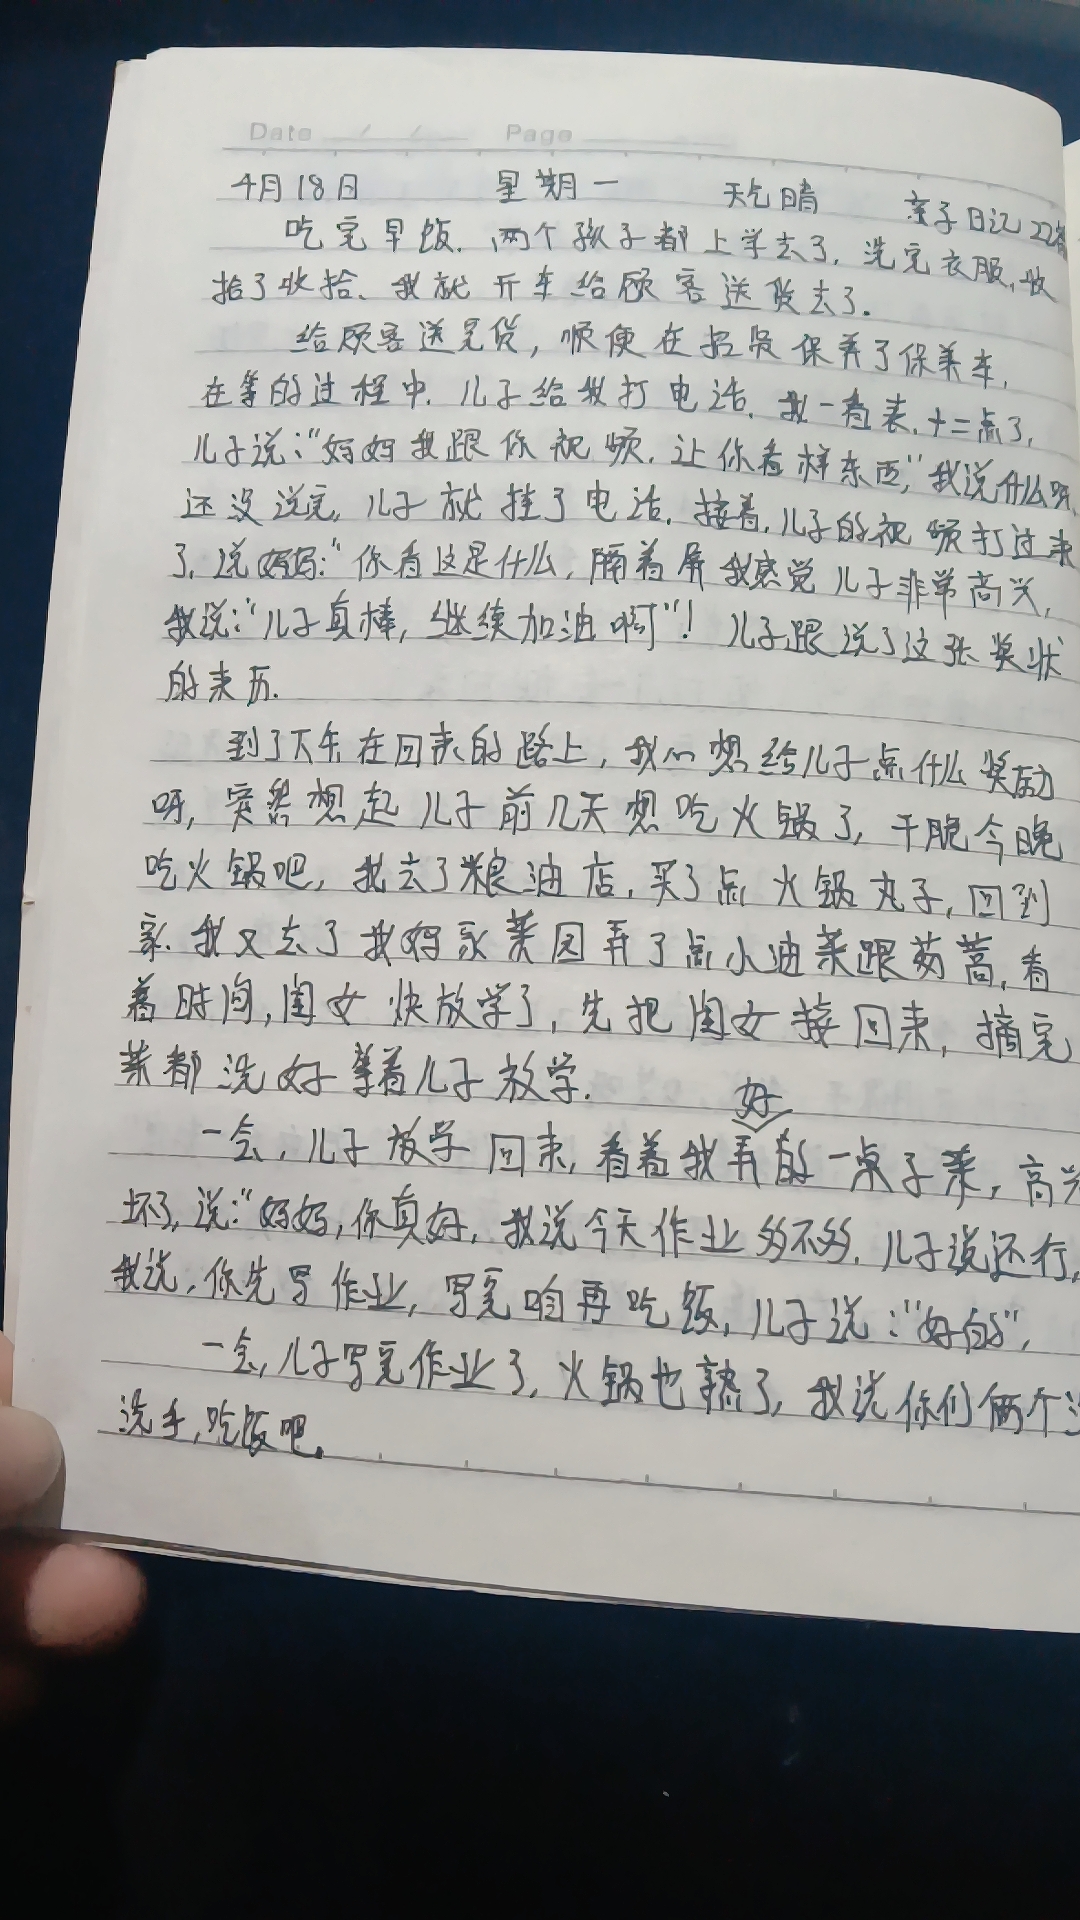 Date / / Page
4月18日 星期一 天气晴 亲子日记22篇
吃完早饭.两个孩子都上学去了.洗完衣服,收
拾了收拾、我就开车给顾客送货去了.
给顾客送完货,顺便在招贤保养了保养车,
在等的过程中.儿子给我打电话.我一看表.十二点了,
儿子说:“妈妈我跟你视频.让你看样东西,”我说什么呀,
还没说完,儿子就挂了电话.接着,儿子的视频打过来
了,说妈妈:“你看这是什么,隔着屏我感觉儿子非常高兴,
我说:“儿子真棒,继续加油啊”!儿子跟说了这张奖状
的来历.
到了下午在回来的路上,我心想给儿子点什么奖励
呀,突然想起儿子前几天想吃火锅了,干脆今晚
吃火锅吧,我去了粮油店,买了点火锅丸子,回到
家.我又去了我妈家菜园弄了点小油菜跟茼蒿,看
着时间,闺女快放学了,先把闺女接回来,摘完
菜都洗好等着儿子放学.
好
一会,儿子放学回来,看着我弄的一桌子菜,高兴
坏了,说:“妈妈,你真好,我说今天作业多不多.儿子说还行,
我说,你先写作业,写完咱再吃饭,儿子说:“好的”,
一会,儿子写完作业了,火锅也熟了,我说你们俩个
洗手,吃饭吧.